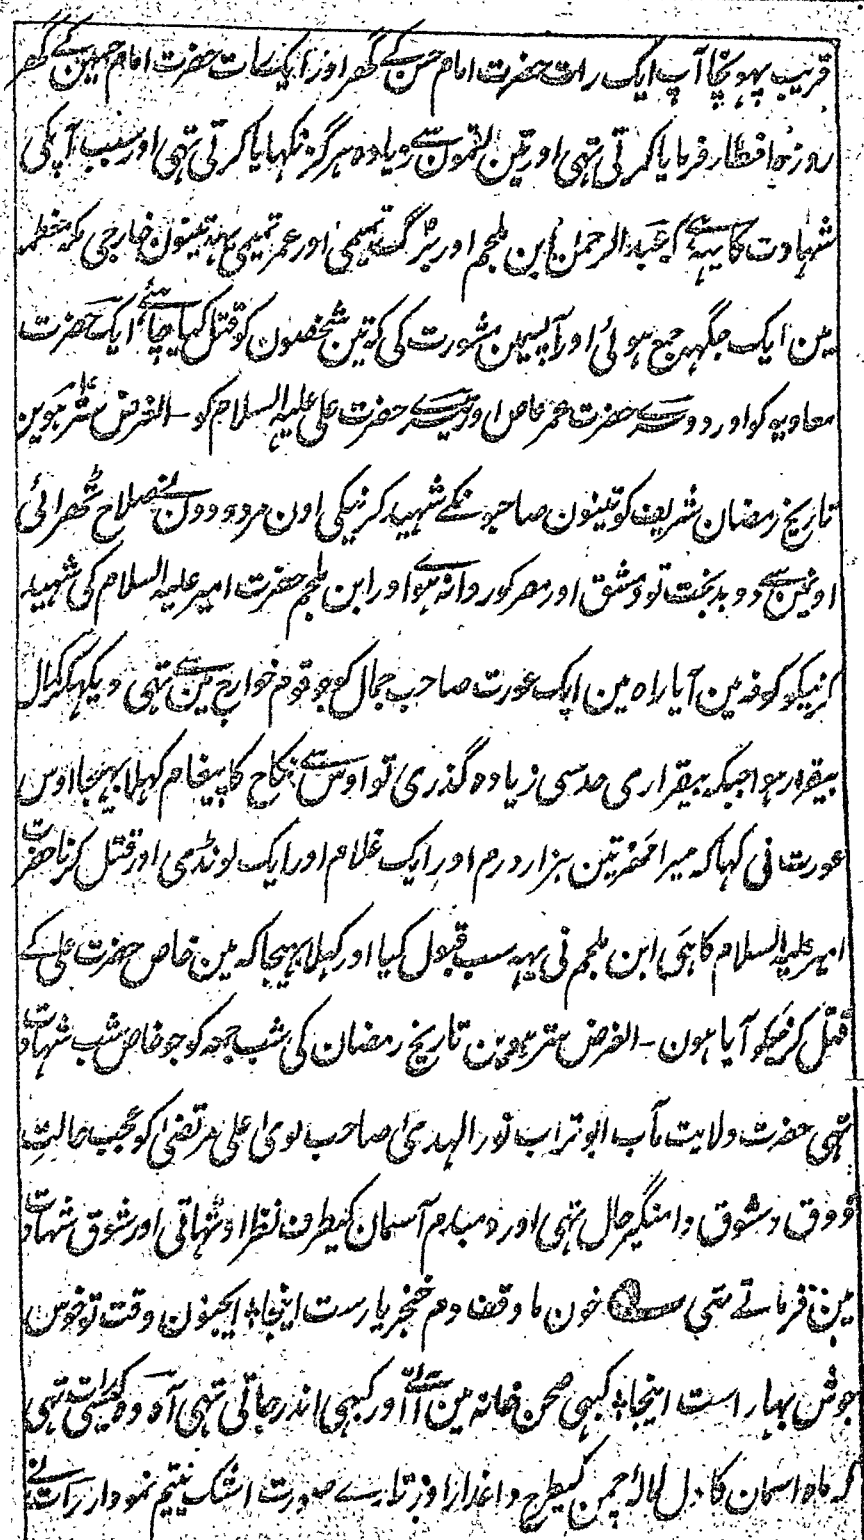 قریب پہونچا آپ ایک رات حضرت امام حسن کے گھر اور ایک رات حضرت امام حسین کے گھر
روزہ افطار فرمایا کرتی تہی اور تین لقمون سے زیادہ ہرگز نکہایا کرتی تہی اور سبب آپکی
شہادت کا یہہ ہے کہ عبدالرحمن ابن ملجم اور برگ تمیمی اور عمر تمیمی یہہ تینون خارجی مکہ معظمہ
مین ایک جگہہ جمع ہوئی اور آپسمین مشورت کی کہ تین شخصون کو قتل کیا چاہئے ایک حضرت
معاویہ کو اور دوسرے حضرت عمر عاص اور تیسرے حضرت علی علیہ السلام کو ۔ الغرض سترہوین
تاریخ رمضان شریف کو تینون صاحبونکے شہید کرنیکی اون مردودون نے صلاح ٹھرائی
اونمین سے دو بدبخت تو دمشق اور مصر کو روانہ ہوے اور ابن ملجم حضرت امیر علیہ السلام کی شہید
کرنیکو کوفہ مین آیا راہ مین ایک عورت صاحب جمال کو جو قوم خوارج مین سے تہی دیکہکر کمال
بیقرار ہوا جبکہ بیقراری حد سی زیادہ گذری تو اوس سے نکاح کا پیغام کہلا بہیجا اوس
عورت نی کہا کہ میرا مہر تین ہزار درم اور ایک غلام اور ایک لونڈی اور قتل کرنا حضرت
امیر علیہ السلام کا ہی ابن ملجم نی یہہ سب قبول کیا اور کہلا بہیجا کہ مین خاص حضرت علی کے
قتل کرنیکو آیا ہون ۔ الغرض سترہوین تاریخ رمضان کی شب جمعہ کو جو خاص شب شہادت
تہی حضرت ولایت مآب ابو تراب نور الہدیٰ صاحب لویٰ علی مرتضیٰ کو عجب حالت
ذوق و شوق دامنگیر حال تہی اور دمبدم آسمان کیطرف نظر اوٹہاتی اور شوق شہادت
مین فرماتے تہی خون ما وقف دم خنجر یارست اینجا ایجنون وقت تو خوش
جوش بہار است اینجا کبہی صحن خانہ مین آتے اور کبہی اندر جاتی تہی آہ وہ کیسی رات تہی
کہ ماہ آسمان کا دل لالۂ چمن کیطرح داغدار اور تارے صورت اشک یتیم نمودار رات نے